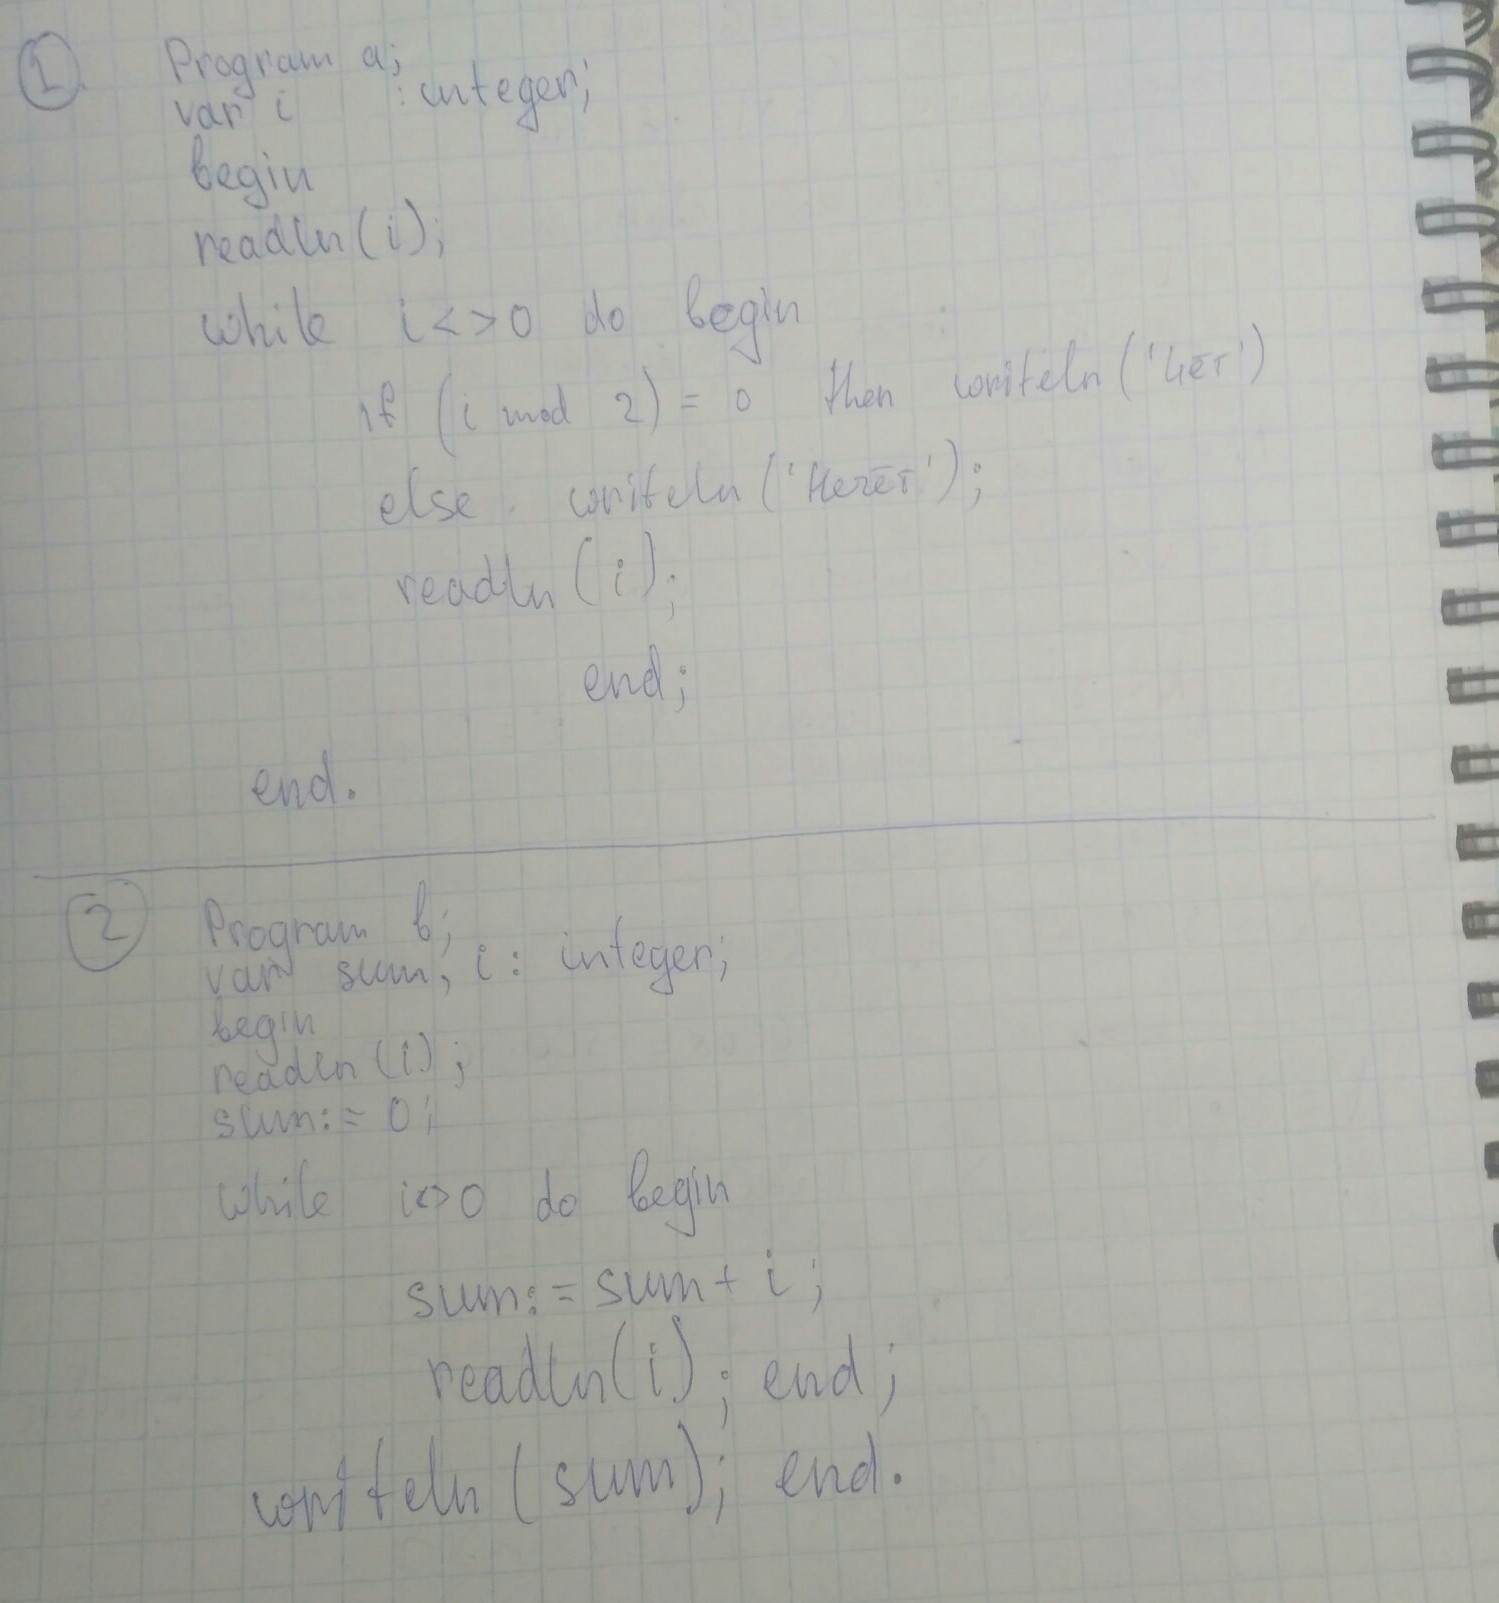 1
Program a;
var i : integer;
begin
readln(i);
while i<>0 do begin
if (i mod 2) = 0 then writeln('Чёт')
else writeln('Нечёт');
readln(i);
end;
end.
2
Program b;
var sum, i: integer;
begin
readln(i);
sum:= 0;
while i<>0 do begin
sum:= sum + i;
readln(i); end;
writeln(sum); end.